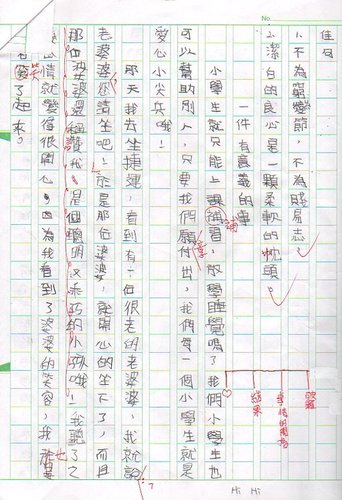 No.
佳句
1.不為窮變節,不為賤易志。
2.潔白的良心是一顆柔軟的枕頭。
一件有意義的事
小學生就只能上課補習,放學睡覺嗎?我們小學生也
補
可以幫助別人,只要我們願付出,我們每一個小學生就是
愛心小尖兵哦!
那天我去坐捷運,看到有一個很老的老婆婆,我就說
老婆婆您請坐吧!於是那位老婆婆,就開心的坐下了,而且
那位婆婆還稱讚我是個聰明又乖巧的小孩哦!我聽了之
心情就覺得很開心,因為我看到了婆婆的笑容,我
也
笑
了起來。
結果
Hi Hi